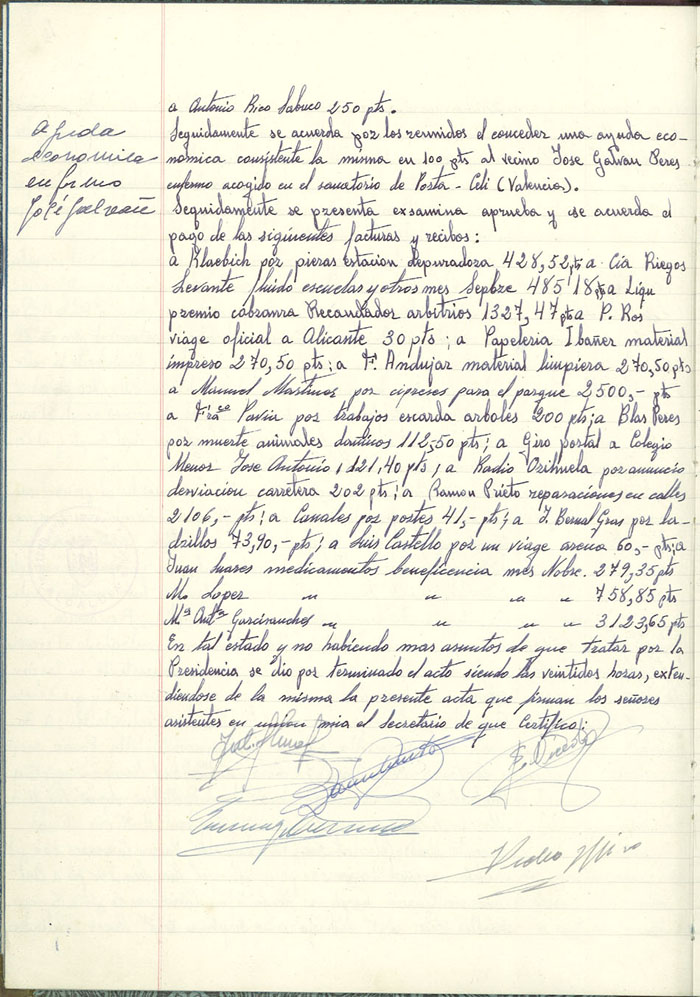 a Antonio Rico Sabuco 250 pts.
Ayuda
economica
enfermo
José Galvañ
Seguidamente se acuerda por los reunidos el conceder una ayuda eco-
nómica consistente la misma en 100 pts al vecino Jose Galvan Peres
enfermo acogido en el sanatorio de Porta-Celi (Valencia).
Seguidamente se presenta exsamina aprueba y se acuerda el
pago de las siguientes facturas y recibos:
a Klaebich por piezas estacion depuradora 428,52 pts a Cia Riegos
Levante fluido escuelas y otros mes Sepbre 485'18 pts a Liqu
premio cobranza Recaudador arbitrios 1327,47 pts a P. Ros
viage oficial a Alicante 30 pts; a Papeleria Ibañez material
impreso 270,50 pts; a F. Andujar material limpieza 270,50 pts
a Manuel Martinez por cipreses para el parque 2,500,- pts
a Frãco Pavia por trabajos escarda arboles 200 pts; a Blas Peres
por muerte animales dañinos 112,50 pts; a Giro portal a Colegio
Menor Jose Antonio 1,121,40 pts; a Radio Orihuela por anuncio
desviacion carretera 202 pts; a Ramon Prieto reparaciones en calles
2106,- pts; a Canales por postes 41,- pts; a J. Bernal Gras por la-
drillos 73,90,- pts; a Luis Castello por un viage arena 60,- pts; a
Juan Juares medicamentos beneficencia mes Nobre. 279,35 pts
M. Lopez " " " " 758,85 pts
Mª Antª Garcisanches " " " " 3123,65 pts
En tal estado y no habiendo mas asuntos de que tratar por la
Presidencia se dio por terminado el acto siendo las veintidos horas, exten-
diendose de la misma la presente acta que firman los señores
asistentes en union mia el Secretario de que Certifico:
Pedro Miro